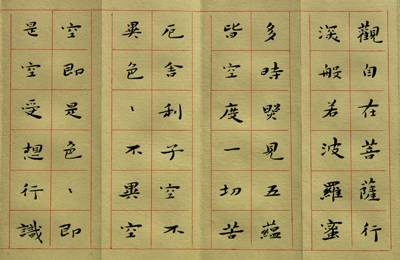 觀自在菩薩行
深般若波羅蜜
多時照見五蘊
皆空度一切苦
厄舍利子空不
異色〻不異空
空即是色〻即
是空受想行識